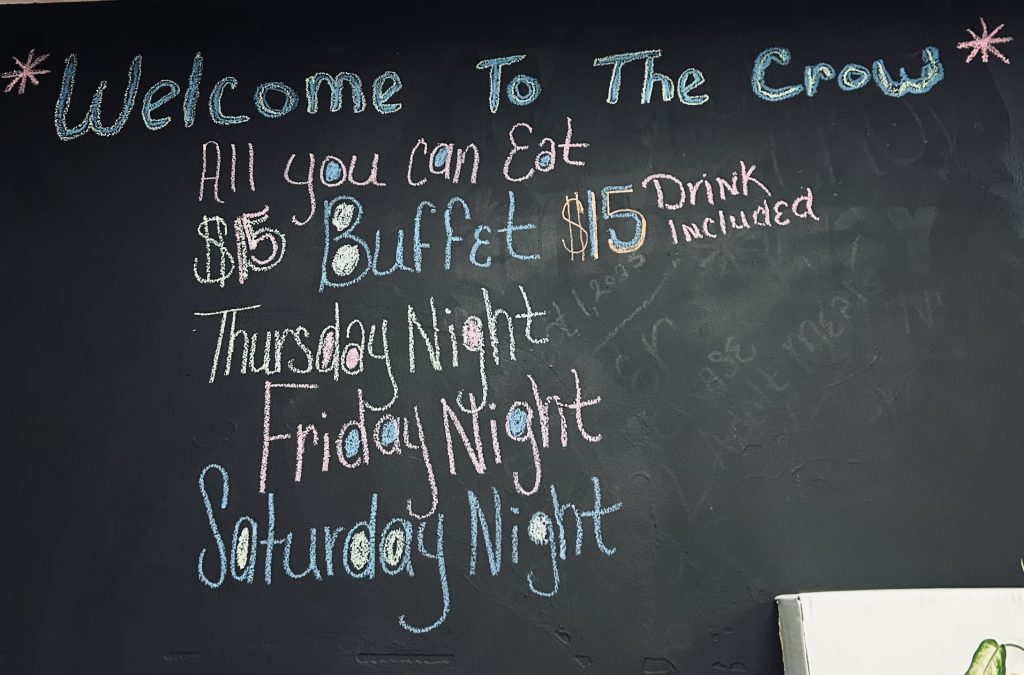 * Welcome To The Crow *
All you can Eat
$15 Buffet $15 Drink Included
Thursday Night
Friday Night
Saturday Night